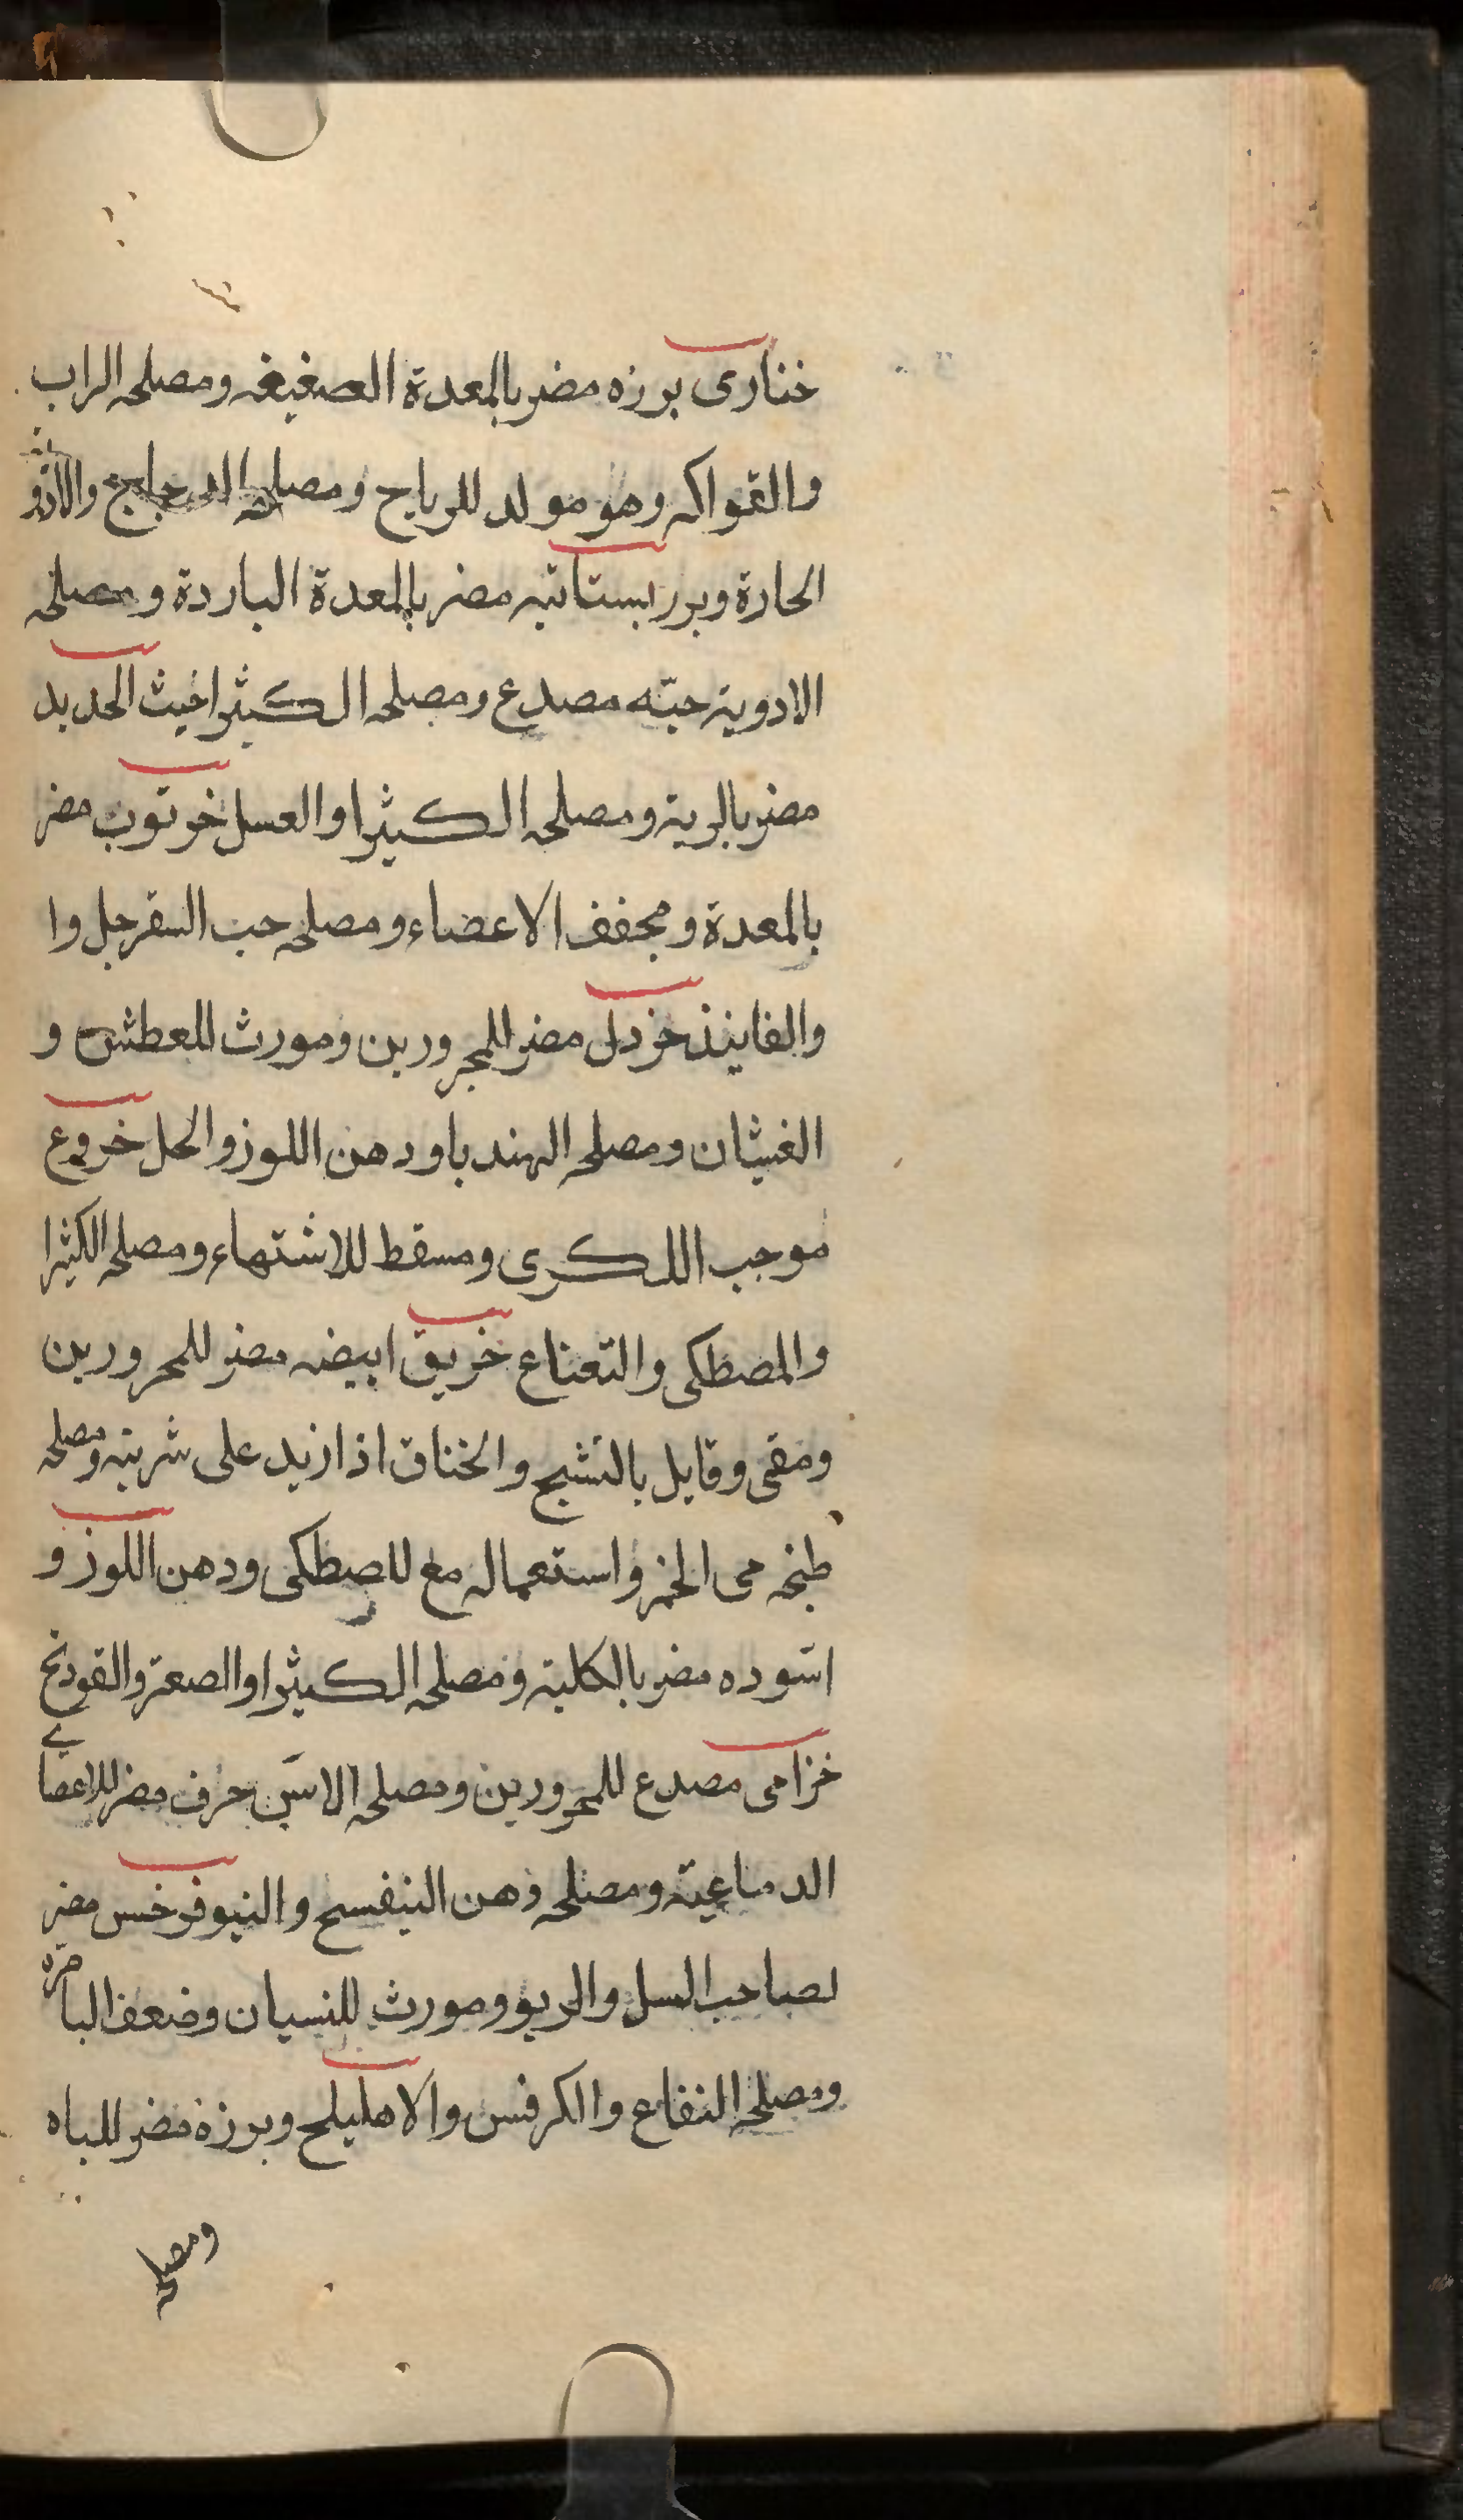 خنازى برزه مضر بالمعدة الصغيغه ومصلحه الراب
والقواكه وهو مولد للرياح ومصلحه الدجاج والافو
الحارة وبرر بستانيه مضر بالمعدة الباردة ومصلحه
الادوية حبّه مصدع ومصلحه الكثيرا خبث الحديد
مضر بالرية ومصلحه الكثيرا والعسل خرتوب مضر
بالمعدة ومجفف الاعضاء ومصلحه حب السفرجل وا
والفانيذ خردل مضر للمحرورين ومورث للعطش و
الغثيان ومصلحه الهندباودهن اللوز والحل خروع
موجب اللكرى ومسقط للاشتهاء ومصلحه الكثيرا
والمصطكى والنعناع خريق ابيضه مضر للمحرورين
ومقى وقايل بالتشبج والخناق اذا زيد على شربته ومصلحه
طبخه مى الخمر واستعماله مع للصطكى ودهن اللوز و
اسوده مضر بالكلية ومصلحه الكثيرا والصعتر والقودنج
خزامى مصدع للمحرورين ومصلحه الاس حرف مضر للاعضاى
الدماغية ومصلحه دهن البنفسج والنيوفر خس مضر
لصاحب السل والربو ومورث للنسيان وضعف الباصرة
ومصلحه النفاع والكرفس والاهليلج وبرزة مضر للباه
ومصلحه